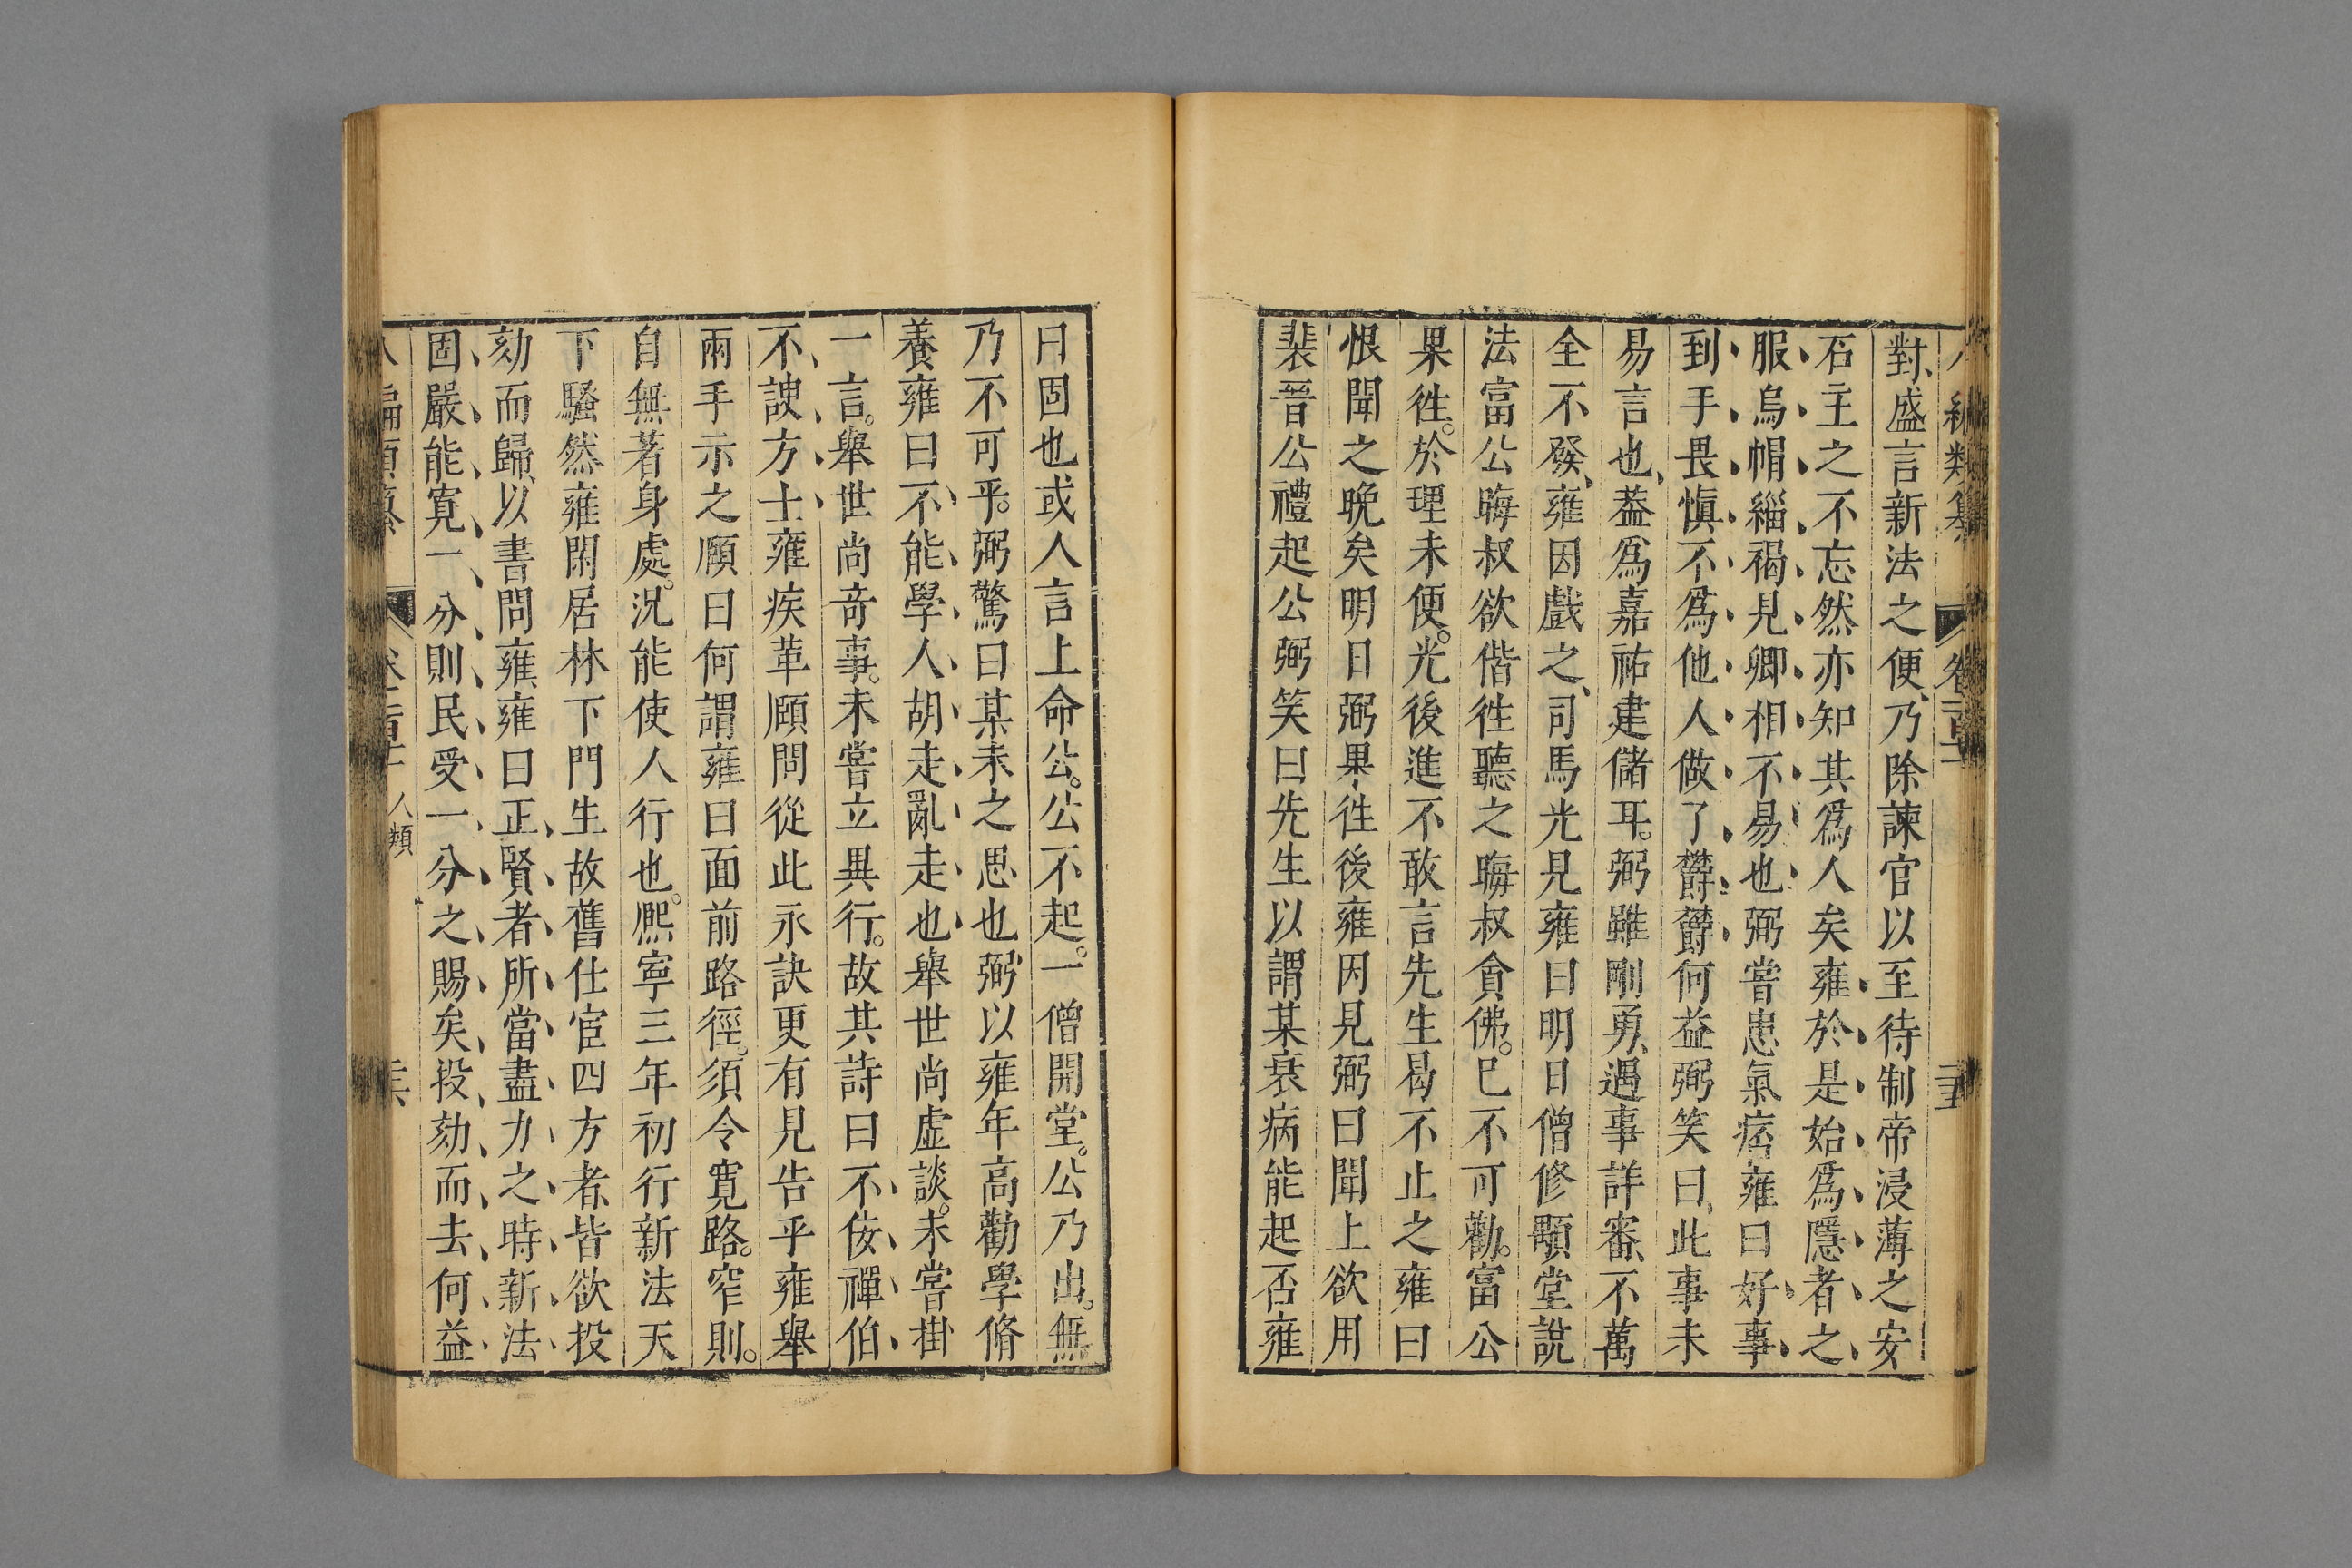 對盛言新法之便乃除諫官以至待制帝浸薄之安
石主之不忘然亦知其爲人矣雍於是始爲隱者之
服烏帽緇褐見卿相不易也弼嘗患氣痞雍曰好事
到手畏愼不爲他人做了欝欝何益弼笑曰此事未
易言也葢爲嘉祐建儲耳弼雖剛勇遇事詳審不萬
全不發雍因戲之司馬光見雍曰明日僧修顒堂說
法富公晦叔欲偕徃聽之晦叔貪佛已不可勸富公
果徃於理未便光後進不敢言先生曷不止之雍曰
恨聞之晚矣明日弼果徃後雍因見弼曰聞上欲用
裴晉公禮起公弼笑曰先生以謂某衰病能起否雍
曰固也或人言上命公公不起一僧開堂公乃出無
乃不可乎弼驚曰某未之思也弼以雍年高勸學脩
養雍曰不能學人胡走亂走也舉世尚虛談未嘗掛
一言舉世尚奇事未嘗立異行故其詩曰不侫禪伯
不諛方士雍疾革頤問從此永訣更有見告乎雍舉
兩手示之頤曰何謂雍曰面前路徑須令寬路窄則
自無著身處況能使人行也熈寧三年初行新法天
下騷然雍閑居林下門生故舊仕宦四方者皆欲投
劾而歸以書問雍雍曰正賢者所當盡力之時新法
固嚴能寛一分則民受一分之賜矣投劾而去何益
人類